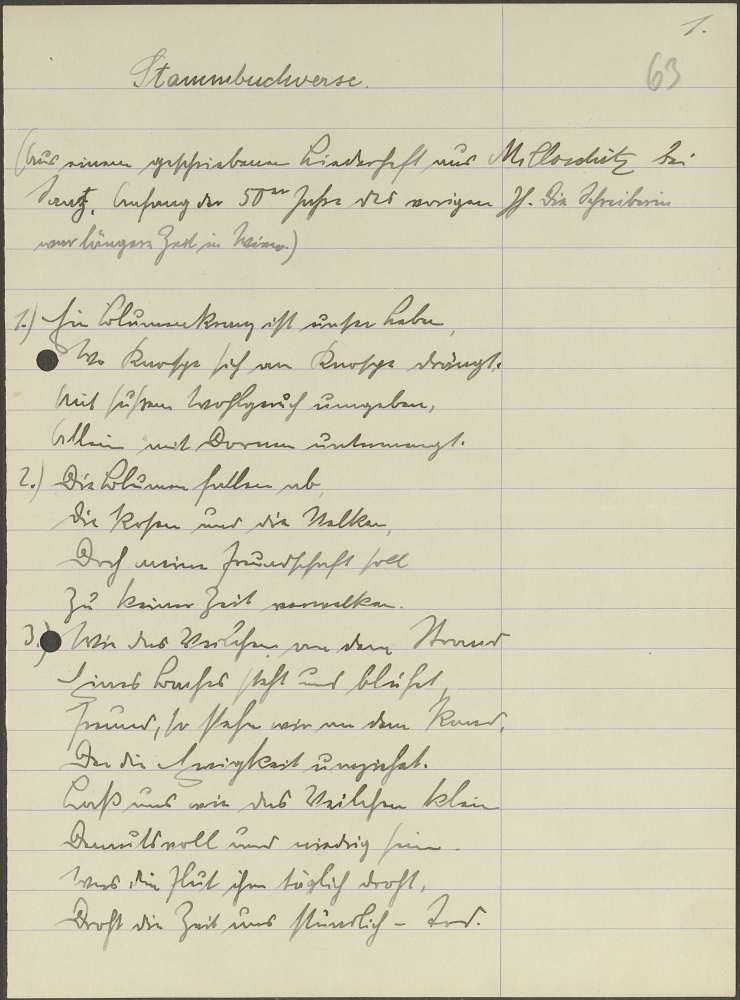 1.
63
Stammbuchverse.
(Aus einem geschriebenen Liederheft aus Milloschitz bei
Anfang der 50er Jahre des vorigen Jh. Die Schreiberin
war längere Zeit in Wien.)
1.) Ein Blumenkranz ist unser Leben,
Wo Knospe sich an Knospe drängt.
Mit süßem Wohlgeruch umgeben,
Allein mit Dornen untermengt.
2.) Die Blumen fallen ab,
Die Rosen und die Nelken,
Doch meine Freundschaft soll
Zu keiner Zeit verwelken.
3.) Wie das Veilchen an dem Strand
Eines Baches steht und blühet,
Freund, so stehn wir an dem Rand,
Den die Ewigkeit umziehet.
Laß uns wie das Veilchen klein
Demutsvoll und niedrig sein.
Was die Flut ihm täglich droht,
Droht die Zeit uns stündlich – Tod.